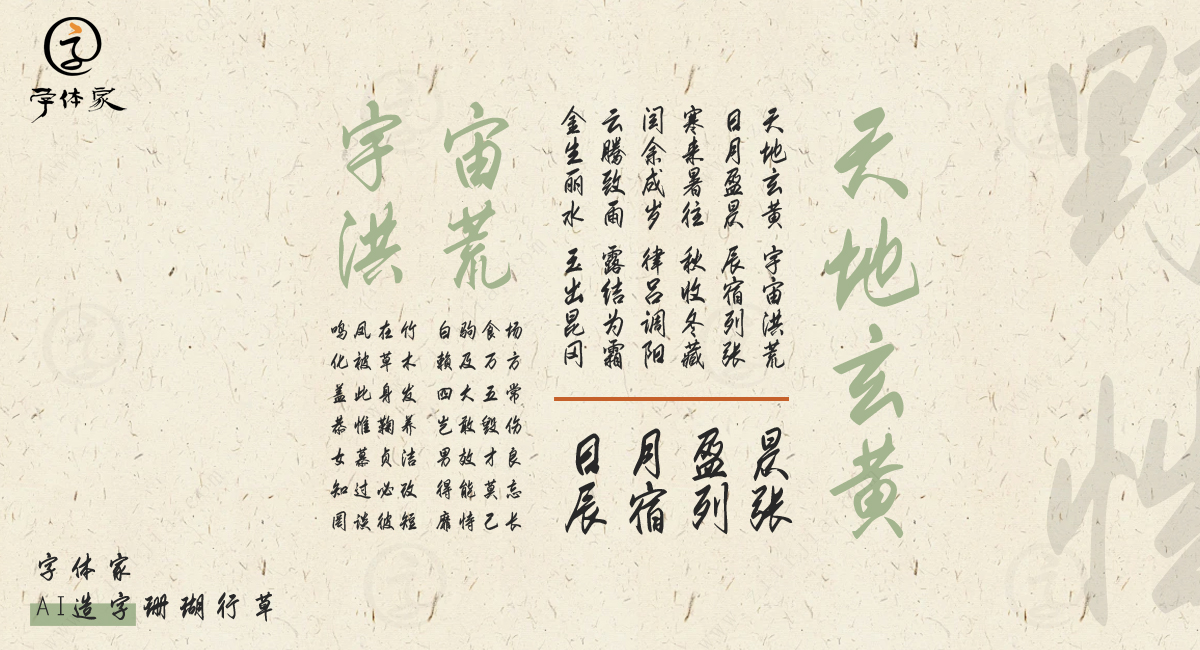 字
字体家
野性
天地玄黄
天地玄黄 宇宙洪荒
日月盈昃 辰宿列张
寒来暑往 秋收冬藏
闰余成岁 律吕调阳
云腾致雨 露结为霜
金生丽水 玉出昆冈
日月盈昃
辰宿列张
宇宙
洪荒
鸣凤在竹 白驹食场
化被草木 赖及万方
盖此身发 四大五常
恭惟鞠养 岂敢毁伤
女慕贞洁 男效才良
知过必改 得能莫忘
罔谈彼短 靡恃己长
字体家
AI造字珊瑚行草